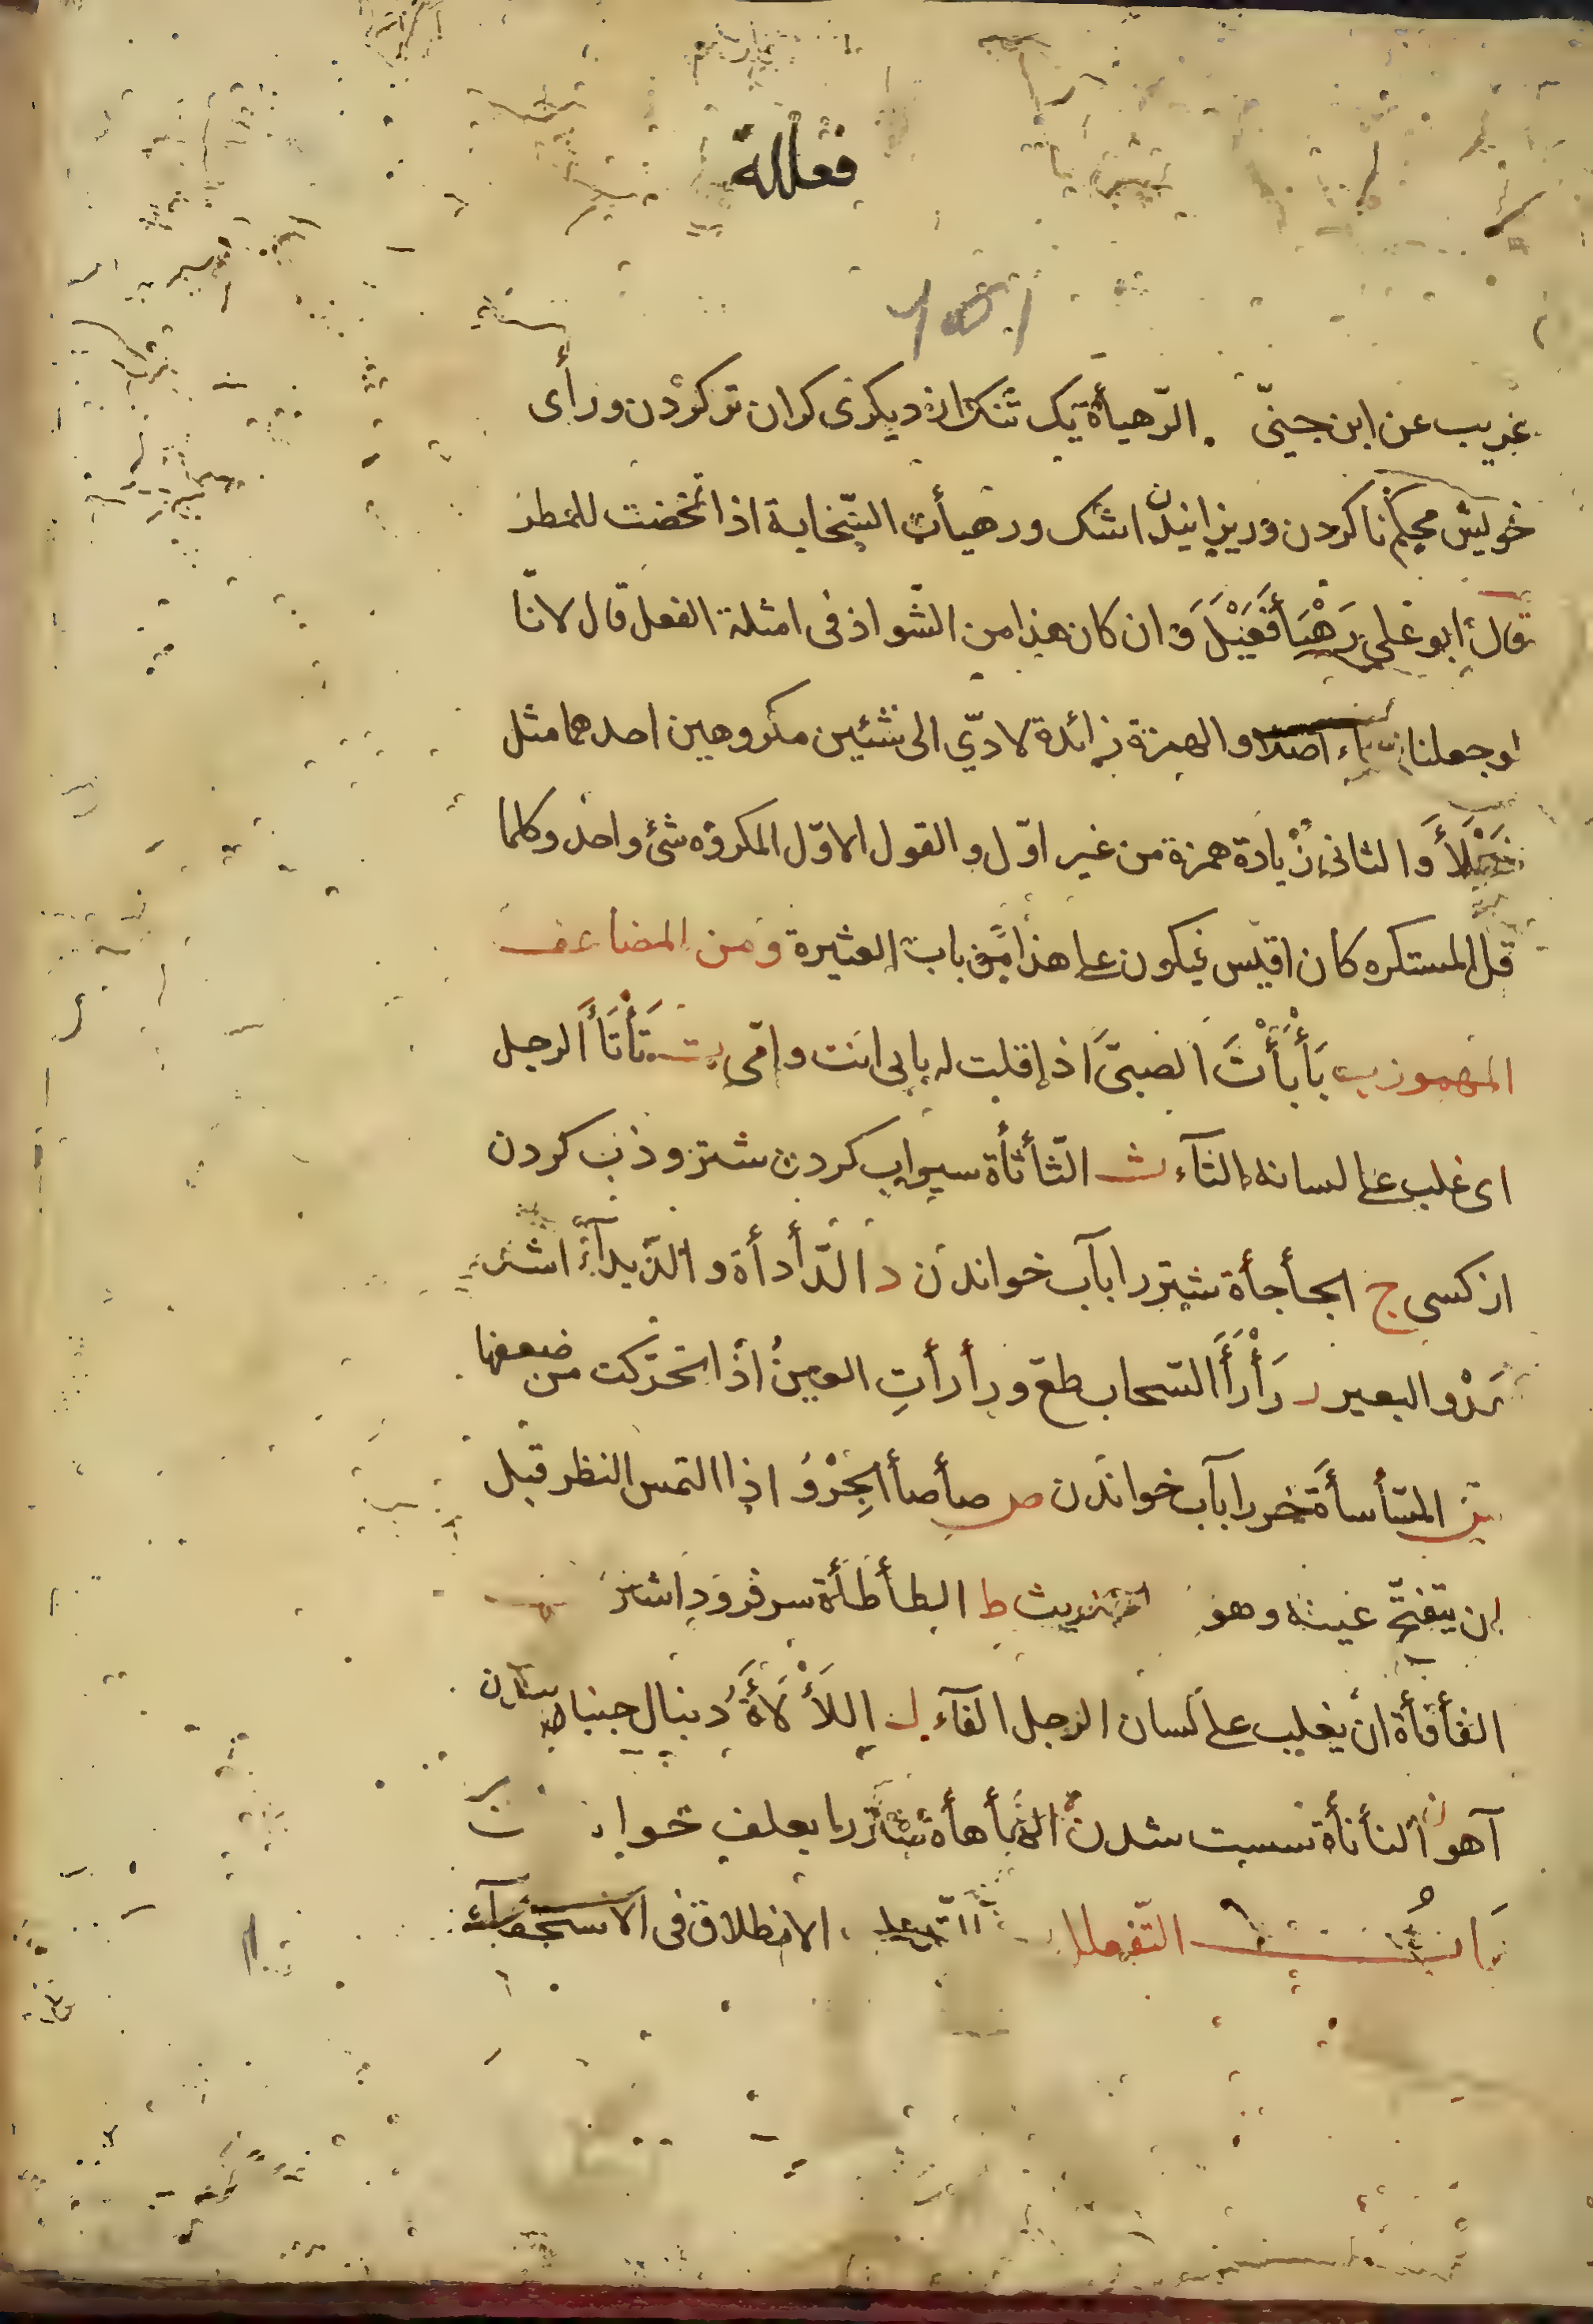 فعللة
غريب عن ابن جنىّ الرّهيأة يك تنك از ديكرى كران تر كردن وراى
خويش محكم ناكردن وريزانيدن اشك ورهيأت السّحابة اذا تمخضت للمطر
قال ابو على رَهْيَأ فَعْيَلَ وان كان هذا من الشّواذ فى امثلة الفعل قال لانّا
لو جعلنا الياء اصلا والهمزة زائدة لادّي الى شئين مكروهين احدهما مثل
فَعْلَأَ والثانى زيادة همزة من غير اوّل والقول الاوّل المكروه شئ واحد وكلما
قل المستكره كان اقيس فيكون على هذا من باب العثيرة ومن المضاعف
المهموز ب بَأْبَأْتُ الصبىَّ اذا قلت له بابى انت وامّى ت تَأْتَأَ الرجل
اى غلب على لسانه التآء ث الثّأثأة سيراب كردن شتر وذب كردن
از كسى ج الجأجأة شتر را بآب خواندن د الدّأدأة والدّيدآء اشد
عَدْو البعير ر رَأْرَأَ السّحاب طع ورأرأتِ العين اذا تحرّكت من ضعفها
س السّأسأة خر را بآب خواندن ص صأصأ الجِرْوُ اذا التمس النظر قبل
ان يتفتّح عينه وهو ط الطأطأة سر فرود اشتن ف
الفأفأة ان يغلب على لسان الرجل الفآء ل اللَأْلَأَة دنبال جنبانيدن
آهو ن النأنأة سست شدن ه الهأهأة شتر را بعلف خواندن
بَابُ التّفعلل الانطلاق فى الاستخفاء